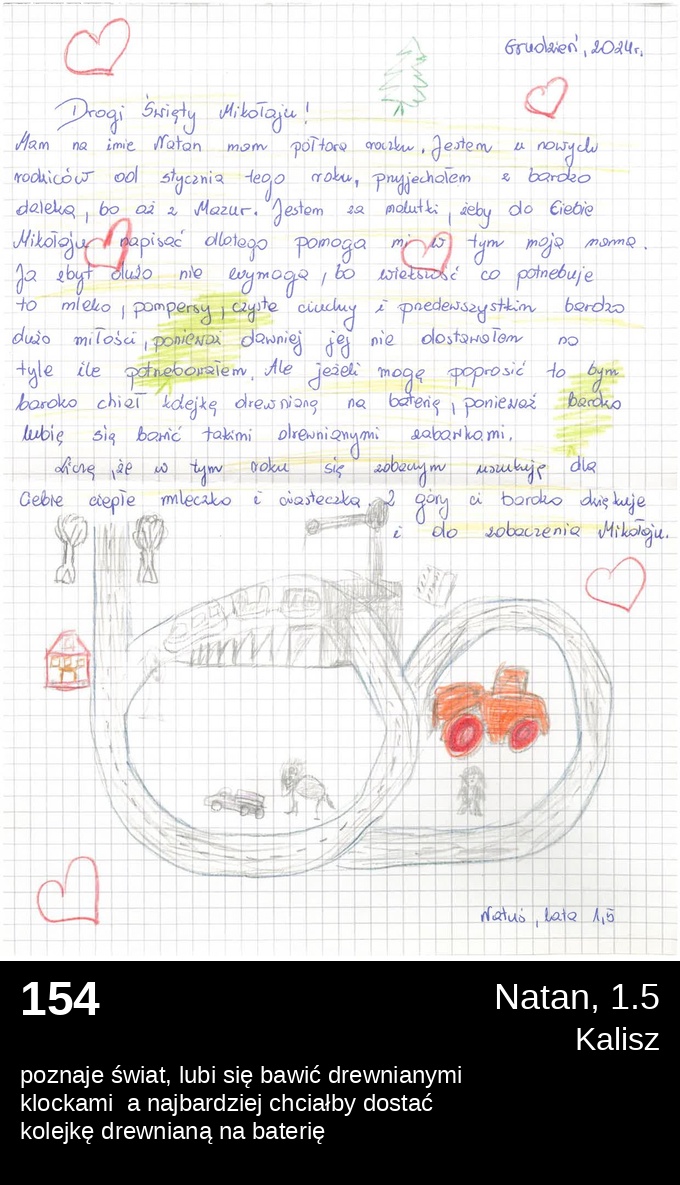 Grudzień, 2024r.
Drogi Święty Mikołaju!
Mam na imie Natan mam półtora roczku. Jestem u nowych
rodziców od stycznia tego roku, przyjechałem z bardzo
daleka, bo aż z Mazur. Jestem za malutki, żeby do Ciebie
Mikołaju napisać dlatego pomoga mi w tym moja mama.
Ja zbyt dużo nie wymoga, bo większość co potrzebuje
to mleko, pampersy, czyste ciuchy i przedewszystkim bardzo
dużo miłości, ponieważ dawniej jej nie dostawałem na
tyle ile potrzebowałem. Ale jeżeli mogę poprosić to bym
bardzo chciał kolejkę drewnianą na baterię, ponieważ bardzo
lubię się bawić takimi drewnianymi zabawkami.
Liczę, że w tym roku się zobaczymy uszykuję dla
Ciebie ciepłe mleczko i ciasteczka. Z góry ci bardzo dziękuje
i do zobaczenia Mikołaju.
Natuś, lata 1,5
154
Natan, 1.5
Kalisz
poznaje świat, lubi się bawić drewnianymi
klockami a najbardziej chciałby dostać
kolejkę drewnianą na baterię